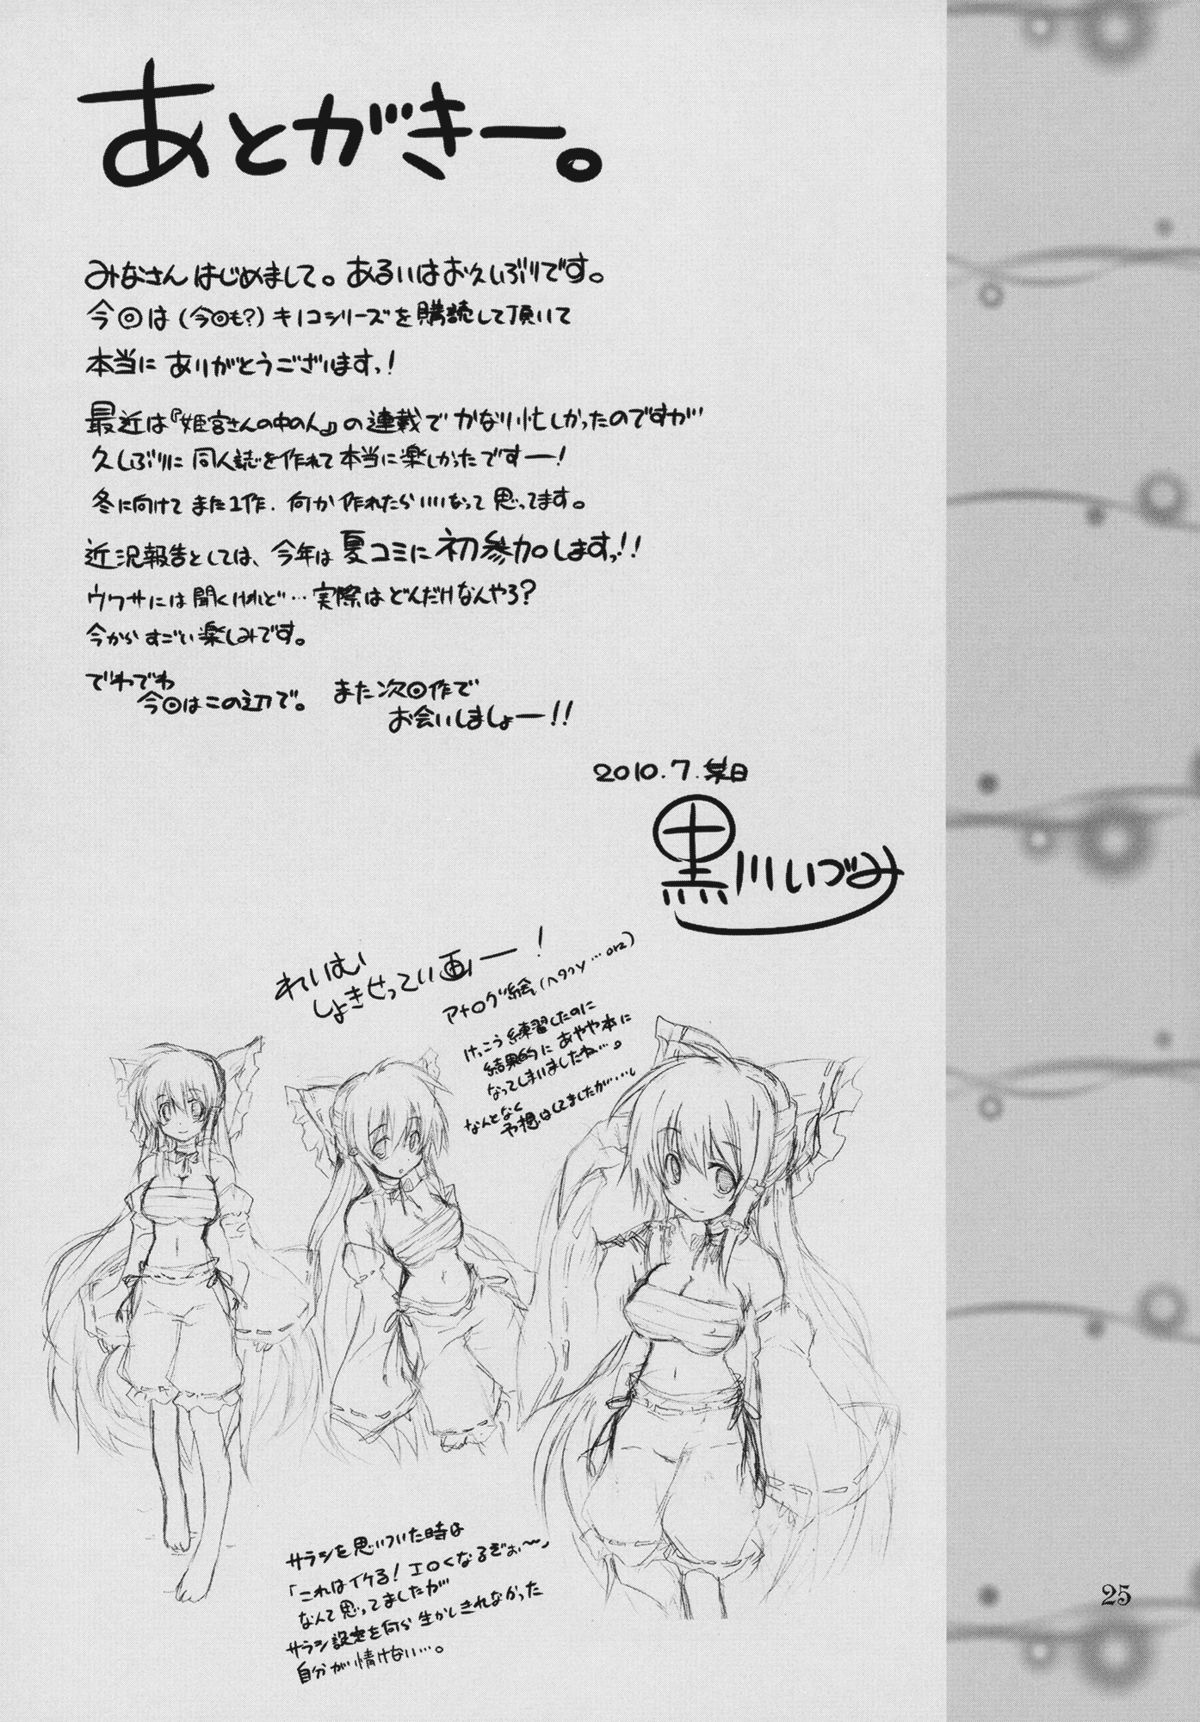 あとがきー。
みなさん はじめまして。あるいはお久しぶりです。
今回は(今回も?)キノコシリーズを購読して頂いて
本当に ありがとうございますっ!
最近は『姫宮さんの中の人』の連載で かなり忙しかったのですが
久しぶりに 同人誌を作れて 本当に楽しかったですー!
冬に向けて また1作、何か作れたらいいなって思ってます。
近況報告としては、今年は夏コミに初参加しますっ!!
ウワサには聞くけれど…実際はどんだけなんやろ?
今からすごい楽しみです。
でわでわ
今回はこの辺で。
また次回作で
お会いしましょー!!
2010.7.某日
黒川いづみ
れいむ
しょきせってい画ー!
アナログ絵(ヘタクソ…orz)
けっこう練習したのに
結果的にあやや本に
なってしまいましたね…。
なんとなく
予想はしてましたが…
サラシを思いついた時は
「これはイケる!エロくなるぞぉ〜」
なんて思ってましたが
サラシ設定を何ら生かしきれなかった
自分が情けない…。
25